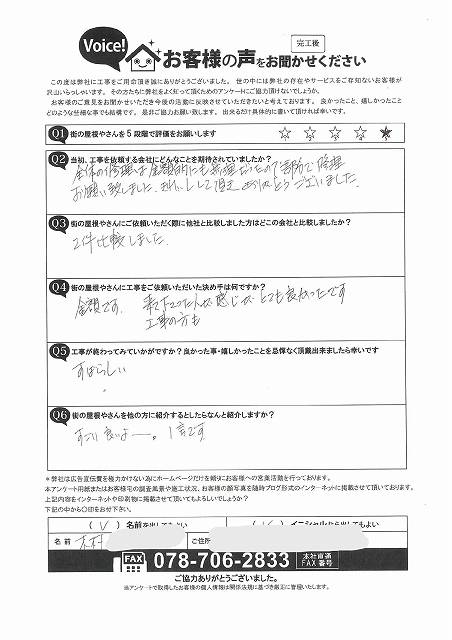 Voice!
お客様の声をお聞かせください
完工後
この度は弊社に工事をご用命頂き誠にありがとうございました。世の中には弊社の存在やサービスをご存知ないお客様が
沢山いらっしゃいます。その方たちに弊社をよく知って頂くためのアンケートにご協力頂けないでしょうか。
お客様のご意見をお聞かせいただき今後の活動に反映させていただきたいと考えております。良かったこと、嬉しかったこと
どのような些細な事でも結構です。是非ご協力お願い致します。出来るだけ具体的に書いて頂ければ幸いです。
Q1 街の屋根やさんを5段階で評価をお願いします
Q2 当初、工事を依頼する会社にどんなことを期待されていましたか?
全体の修理は金額的にも無理だったので部分で修理
お願い致しました。きれいにして頂きありがとうございました。
Q3 街の屋根やさんにご依頼いただく際に他社と比較しました方はどこの会社と比較しましたか?
2件比較しました。
Q4 街の屋根やさんに工事をご依頼いただいた決め手は何ですか?
金額です。来て下さった人が感じがとても良かったです
工事の方も
Q5 工事が終わってみていかがですか?良かった事・嬉しかったことを忌憚なく頂戴出来ましたら幸いです
すばらしい
。
Q6 街の屋根やさんを他の方に紹介するとしたらなんと紹介しますか?
すごい良いよー。1番です
*弊社は広告宣伝費を極力かけない為にホームページだけを頼りにお客様への営業活動を行っております。
本アンケート用紙またはお客様宅の調査風景や施工状況、お客様の顔写真を随時ブログ形式のインターネットに掲載させて頂いております。
上記内容をインターネットや印刷物に掲載させて頂いてもよろしいでしょうか?
下記の中から〇印をお付け下さい。
(V) 名前を出してもよい
イニシャルなら出してもよい
名前 木村
ご住所
FAX 078-706-2833 本社直通 FAX番号
ご協力ありがとうございました。
※アンケートで取得したお客様の個人情報は関係法規に基づき厳正に管理いたします。